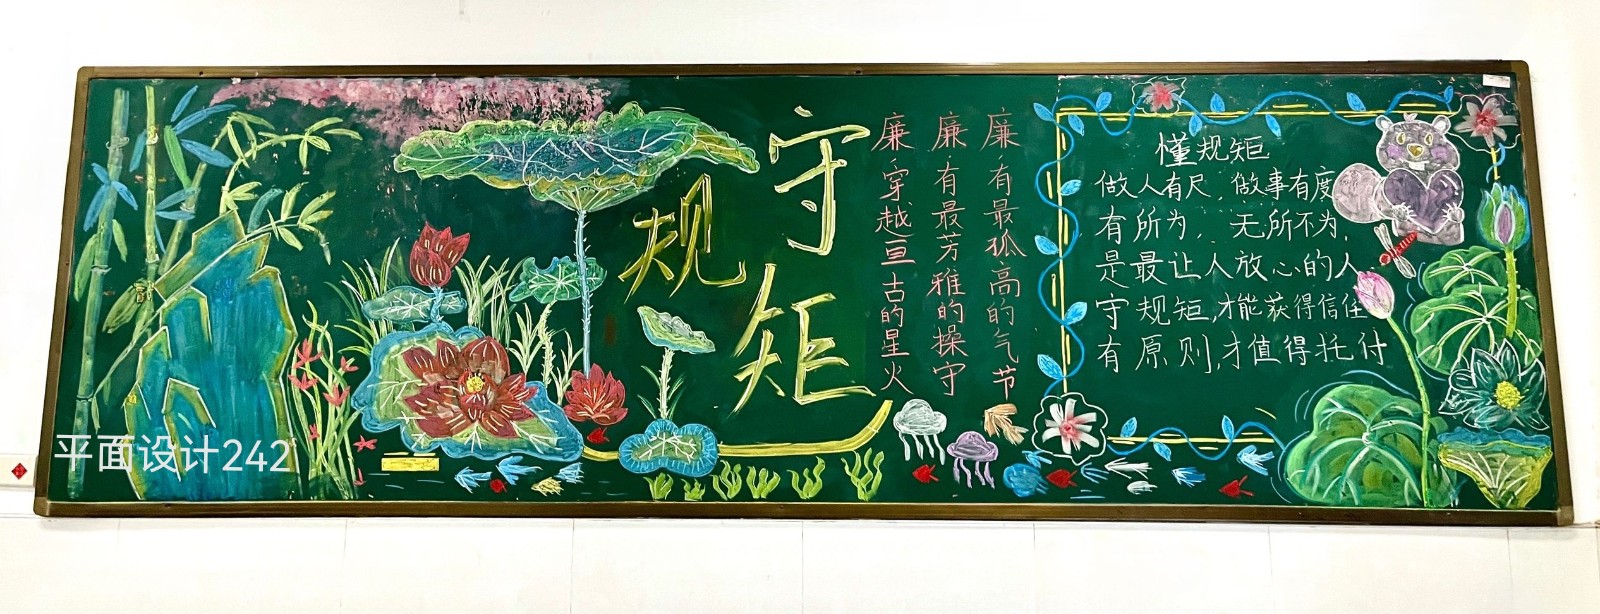 守规矩
廉有最孤高的气节
廉有最芳雅的操守
廉穿越亘古的星火
懂规矩
做人有尺，做事有度
有所为，无所不为，
是最让人放心的人
守规矩，才能获得信任
有原则，才值得托付
平面设计242